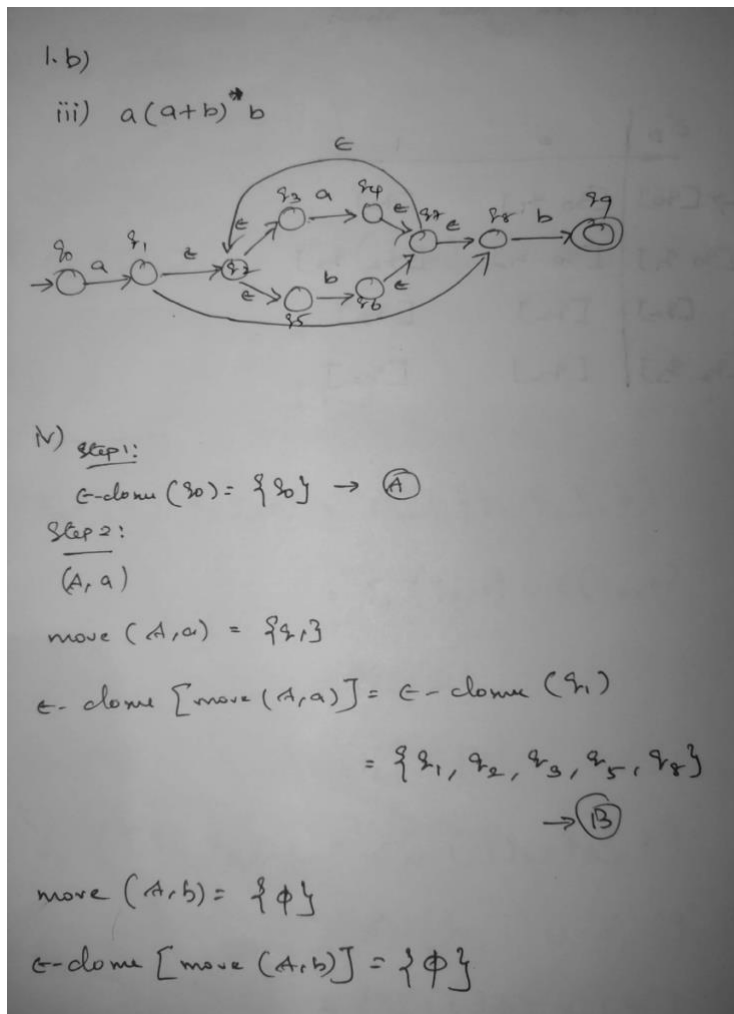 1.b)
iii) a(a+b)*b
ε
q3 a q4 q9
q0 a q1 ε q2 ε ε q7 ε q8 b
ε q5 b q6 ε
iv) Step 1:
ε-closure (q0) = {q0} → A
Step 2:
(A, a)
move (A, a) = {q1}
ε-closure [move (A, a)] = ε-closure (q1)
= {q1, q2, q3, q5, q8}
→ B
move (A, b) = {φ}
ε-closure [move (A, b)] = {φ}